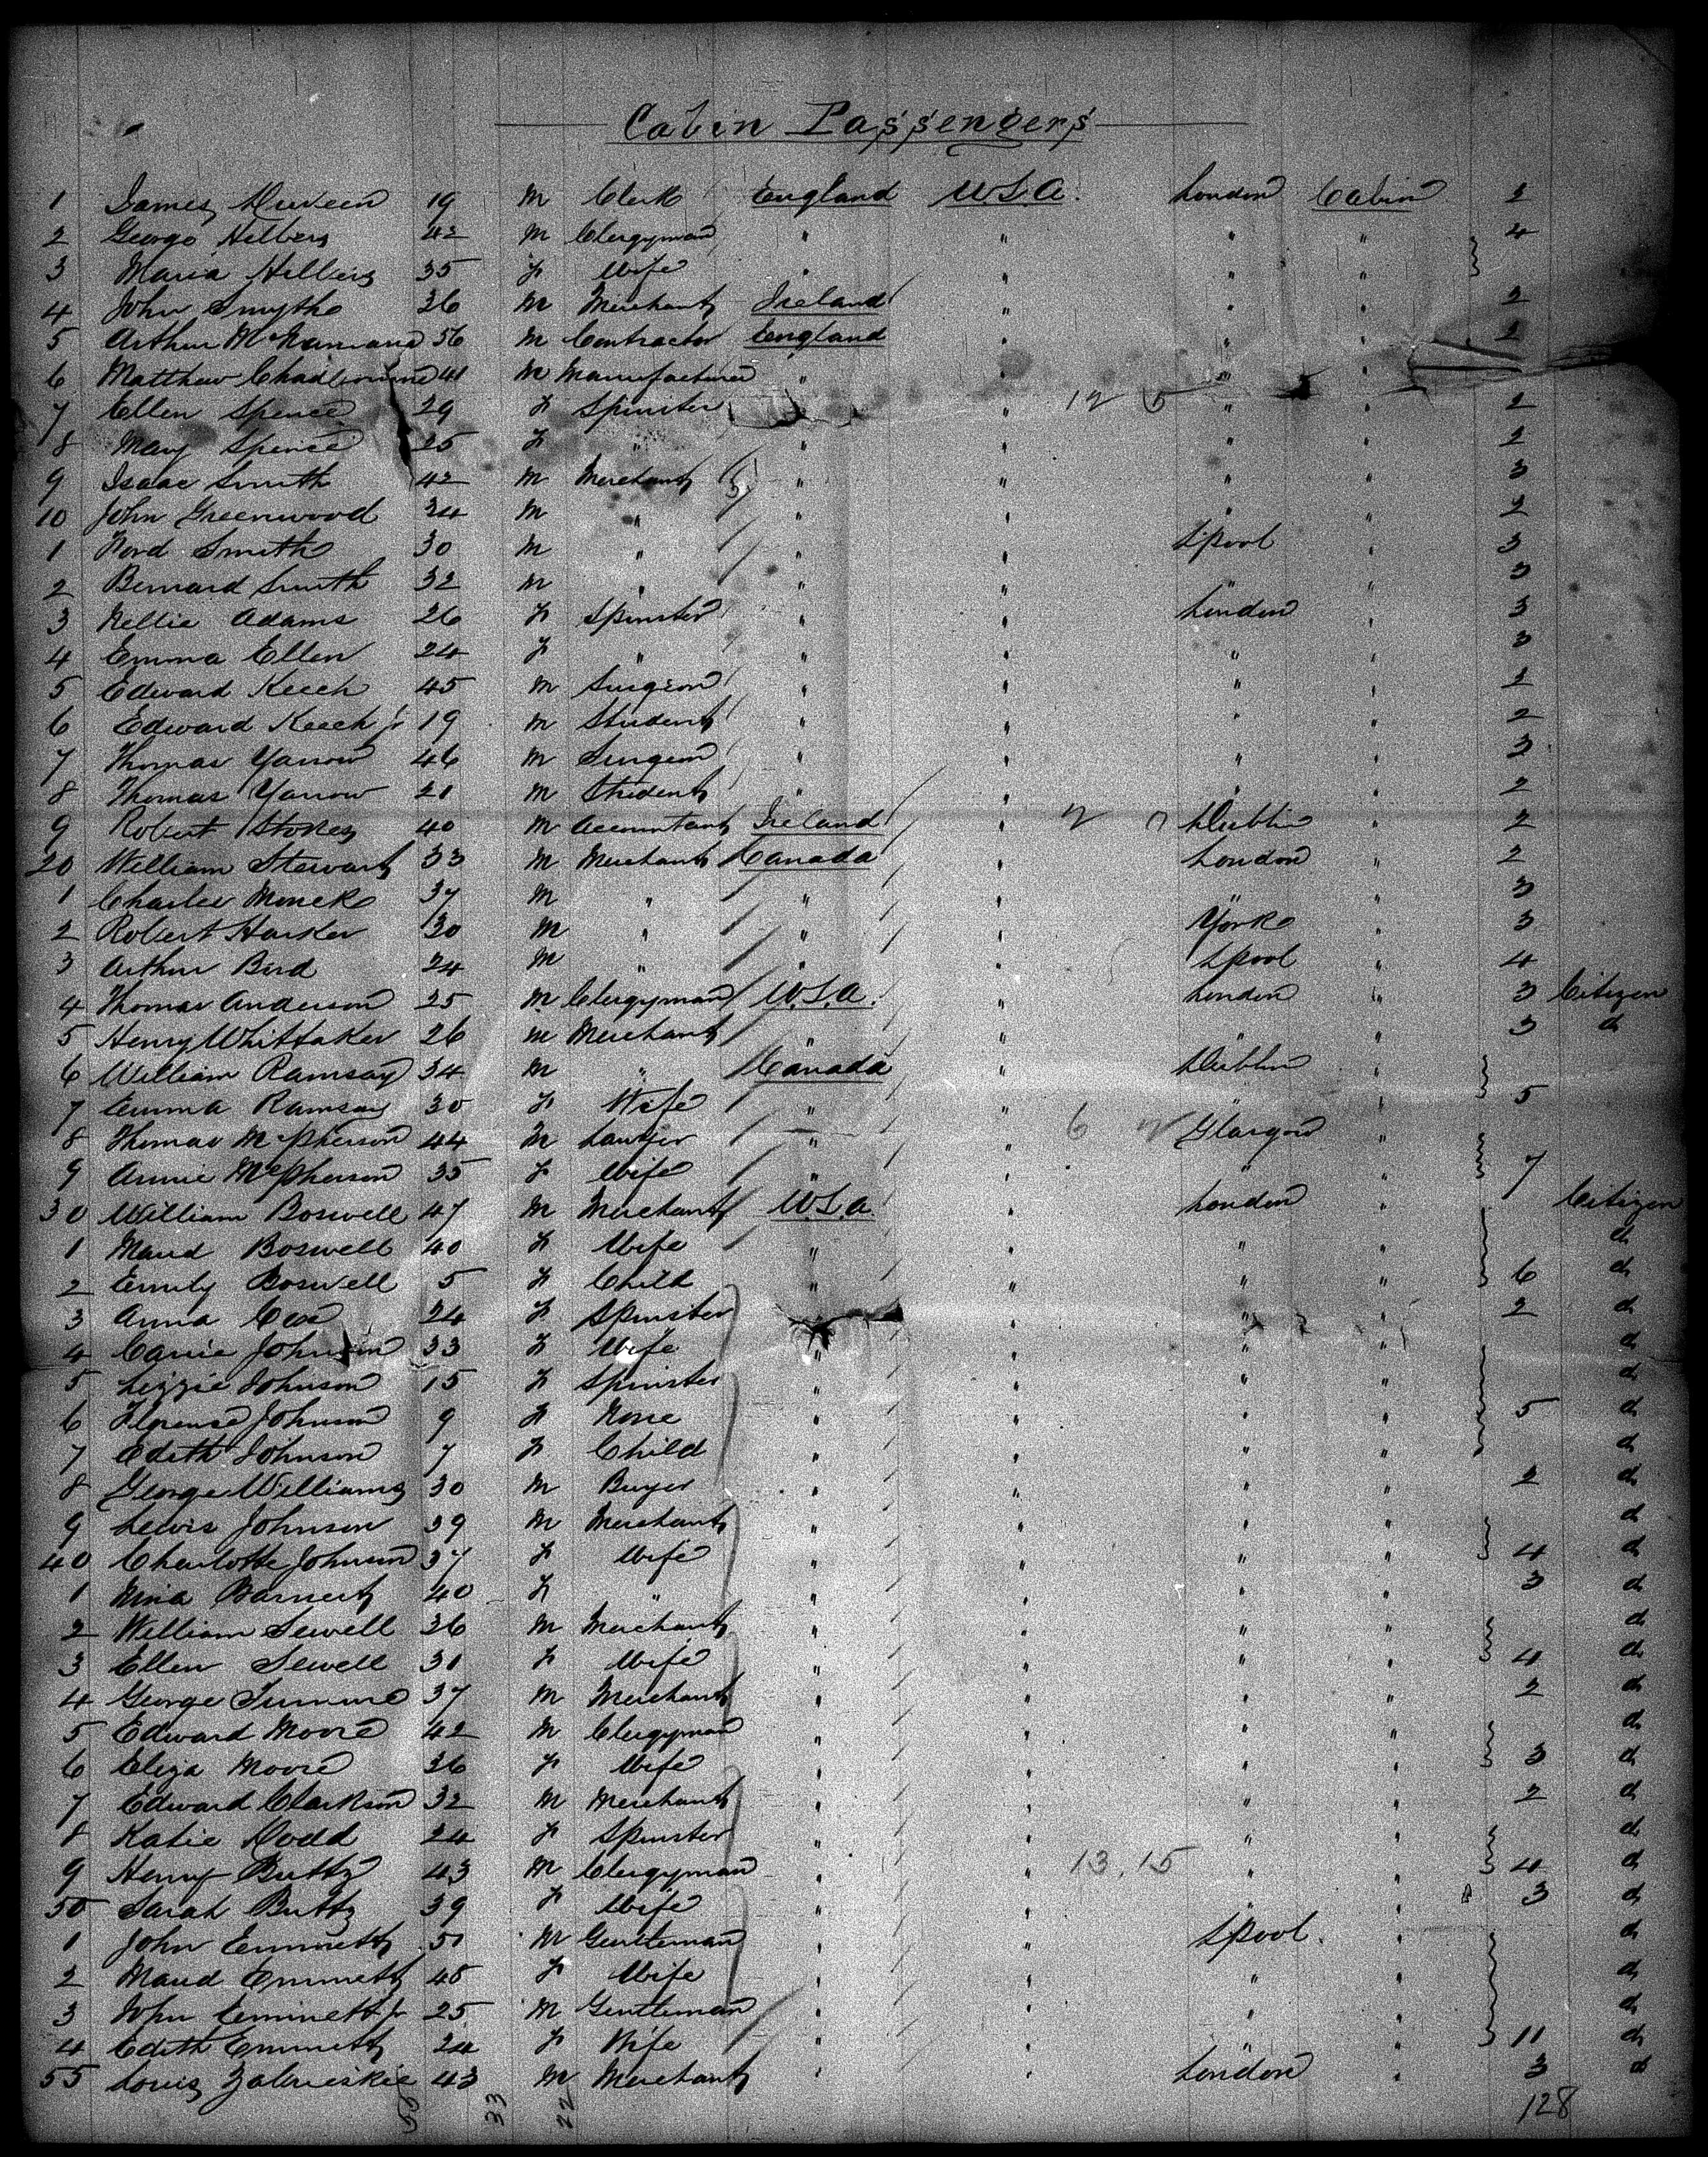 Cabin Passengers
1 James 19 M Clerk England U.S.A. London Cabin 2
2 George Hilbers 42 M Clergyman " " " " 4
3 Maria Hilbers 35 F Wife " " " "
4 John Smythe 26 M Merchant Ireland " " " 2
5 Arthur McNamara 56 M Contractor England " " " 2
6 Matthew 41 M Manufacturer " " " "
7 Ellen Spence 29 F Spinster " 12 5 " " 2
8 Mary Spence 25 F " " " " " 2
9 Isaac Smith 42 M Merchant " " " " 3
10 John Greenwood 34 M " " " " " 2
1 Smith 30 M " " " Lpool " 3
2 Bernard Smith 32 M " " " " " 3
3 Nellie Adams 26 F Spinster " " London " 3
4 Emma Ellen 24 F " " " " " 3
5 Edward Keech 45 M Surgeon " " " " 2
6 Edward Keech Jr 19 M Student " " " " 2
7 Thomas Yarrow 46 M Surgeon " " " " 3
8 Thomas Yarrow 21 M Student " " " " 2
9 Robert Stokes 40 M Accountant Ireland " 2 Dublin " 2
20 William Stewart 33 M Merchant Canada " London " 2
1 Charles Monck 37 M " " " " " 3
2 Robert Harker 30 M " " " York " 3
3 Arthur Bird 24 M " " " Lpool " 4
4 Thomas Anderson 25 M Clergyman U.S.A. " London " 3 Citizen
5 Henry Whittaker 26 M Merchant " " " " 3 do
6 William Ramsay 34 M " Canada " Dublin "
7 Emma Ramsay 30 F Wife " " " " 5
8 Thomas McPherson 44 M Lawyer " " 6 2 Glasgow "
9 Annie McPherson 35 F Wife " " " " 7
30 William Boswell 47 M Merchant U.S.A. " London " Citizen
1 Maud Boswell 40 F Wife " " " " do
2 Emily Boswell 5 F Child " " " " 6 do
3 Anna Coe 24 F Spinster " " " " 2 do
4 Carrie Johnson 33 F Wife " " " " do
5 Lizzie Johnson 15 F Spinster " " " " do
6 Florence Johnson 9 F None " " " " 5 do
7 Edith Johnson 7 F Child " " " " do
8 George Williams 30 M Buyer " " " " 2 do
9 Lewis Johnson 39 M Merchant " " " " do
40 Charlotte Johnson 37 F Wife " " " " 4 do
1 Nina Barnett 40 F " " " " " 3 do
2 William Sewell 36 M Merchant " " " " do
3 Ellen Sewell 31 F Wife " " " " 4 do
4 George 37 M Merchant " " " " 2 do
5 Edward Moore 42 M Clergyman " " " " do
6 Eliza Moore 36 F Wife " " " " 3 do
7 Edward Clarkson 32 M Merchant " " " " 2 do
8 Katie Dodd 24 F Spinster " " " " do
9 Henry Buttz 43 M Clergyman " " 13.15 " " 4 do
50 Sarah Buttz 39 F Wife " " " " 3 do
1 John Emmett 51 M Gentleman " " Lpool. " do
2 Maud Emmett 45 F Wife " " " " do
3 John Emmett Jr 25 M Gentleman " " " " do
4 Edith Emmett 24 F Wife " " " " 11 do
55 Louis 43 M Merchant " " London " 3 do
55 33 22 128